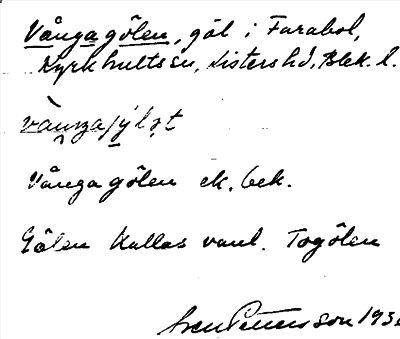 Vångagölen, göl i Farabol,
Kyrkhults sn, Listers hd, Blek. l.
Vångagölen ek. bek.
Gölen kallas vanl. Togölen
Sven Petersson 193